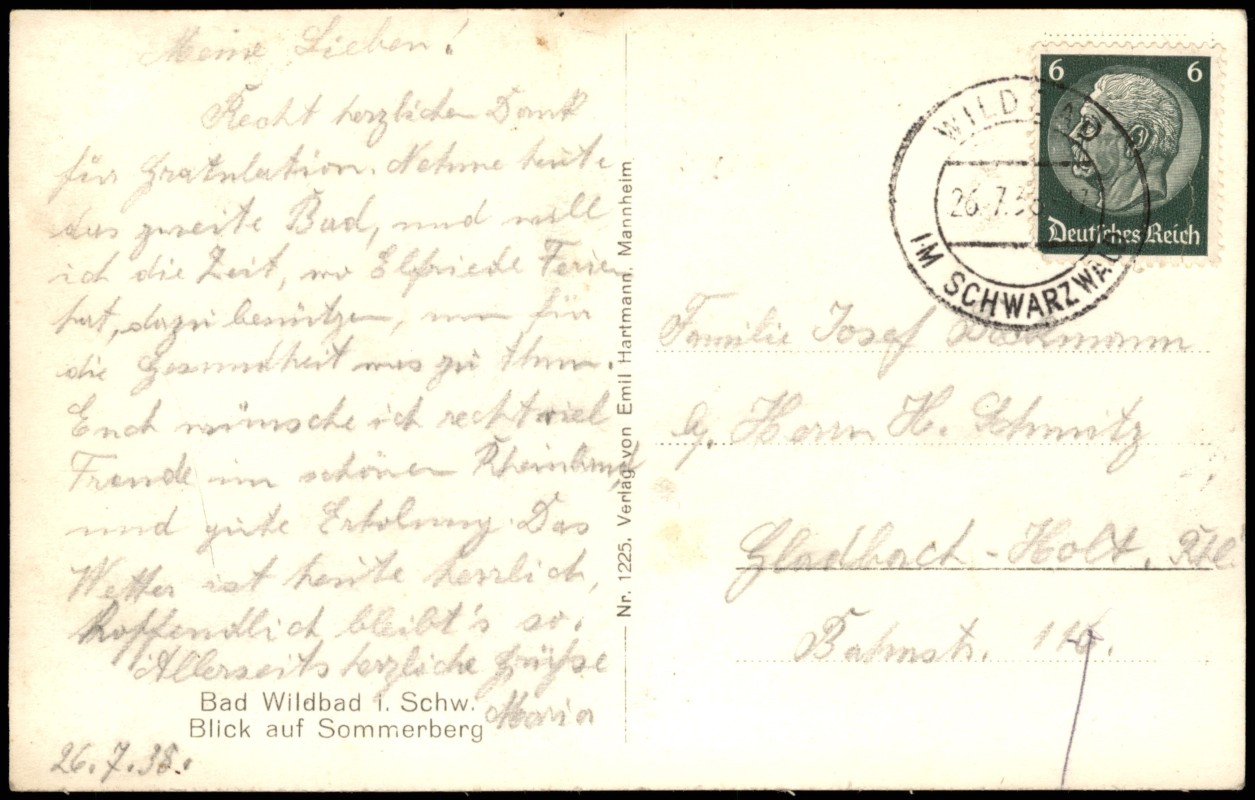 Meine Lieben!
Recht herzlichen Dank
für Gratulation. Nehme heute
das zweite Bad, und will
ich die Zeit, wo Elfriede Ferien
hat, dazu benützen, um für
die Gesundheit was zu thun.
Euch wünsche ich recht viel
Freude im schönen Rheinland,
und gute Erholung. Das
Wetter ist heute herrlich,
hoffendlich bleibt's so.
Allerseits herzliche Grüße
Maria
Bad Wildbad i. Schw.
Blick auf Sommerberg
26.7.38.
Nr. 1225. Verlag von Emil Hartmann, Mannheim
6 6
Deutsches Reich
WILDBAD
26.7.38
IM SCHWARZWALD
Familie Josef
Herrn H. Schmitz
Gladbach-Holt, Rhl
Bahnstr.